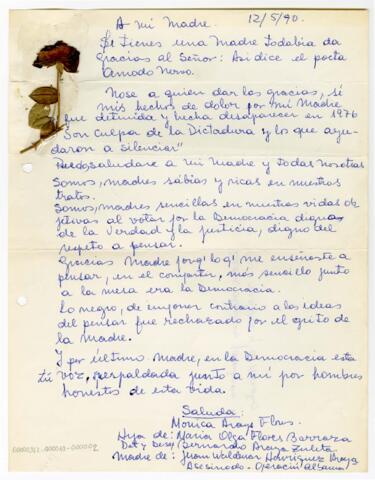 A Mi Madre. 12/5/90.
Si Tienes una Madre Todabia da
Gracias al Señor: Asi dice el poeta
Amado Nervo.
Nose a quien dar las gracias, si
mis hechos de dolor por mi Madre
fue detenida y hecha desaparecer en 1976
Son culpa de la Dictadura y los que ayu-
daron a silenciar"
saludare a mi Madre y todas nosotras
Somos, madres sabias y ricas en nuestros
tratos.
Somos, madres sencillas en nuestras vidas ob-
jetivas al votar por la Democracia dignas
de la Verdad y la justicia, digno del
respeto a pensar.
Gracias Madre porq' log' me enseñaste a
pensar, en el compartir, más sencillo junto
a la mesa era la Democracia.
Lo negro, de imponer contrario a las ideas
del pensar fue rechazado por el grito de
la madre.
Y por último madre, en la Democracia esta
tú voz, respaldada junto a mí por hombres
honestos de esta vida.
Saluda:
Monica Araya Flores.
Hija de: Maria Olga Flores Barraza
Det y Desap Bernardo Araya Zuleta
madre de: Juan Waldemar Henríquez Araya
Asesinado - Operación Albania
00000351-000003-000002